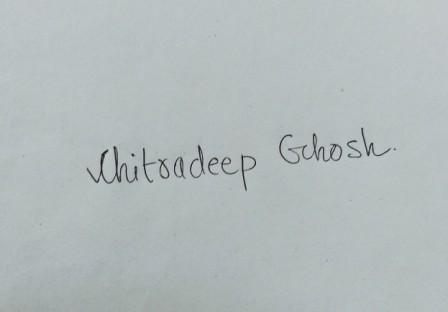 Chitradeep Ghosh.